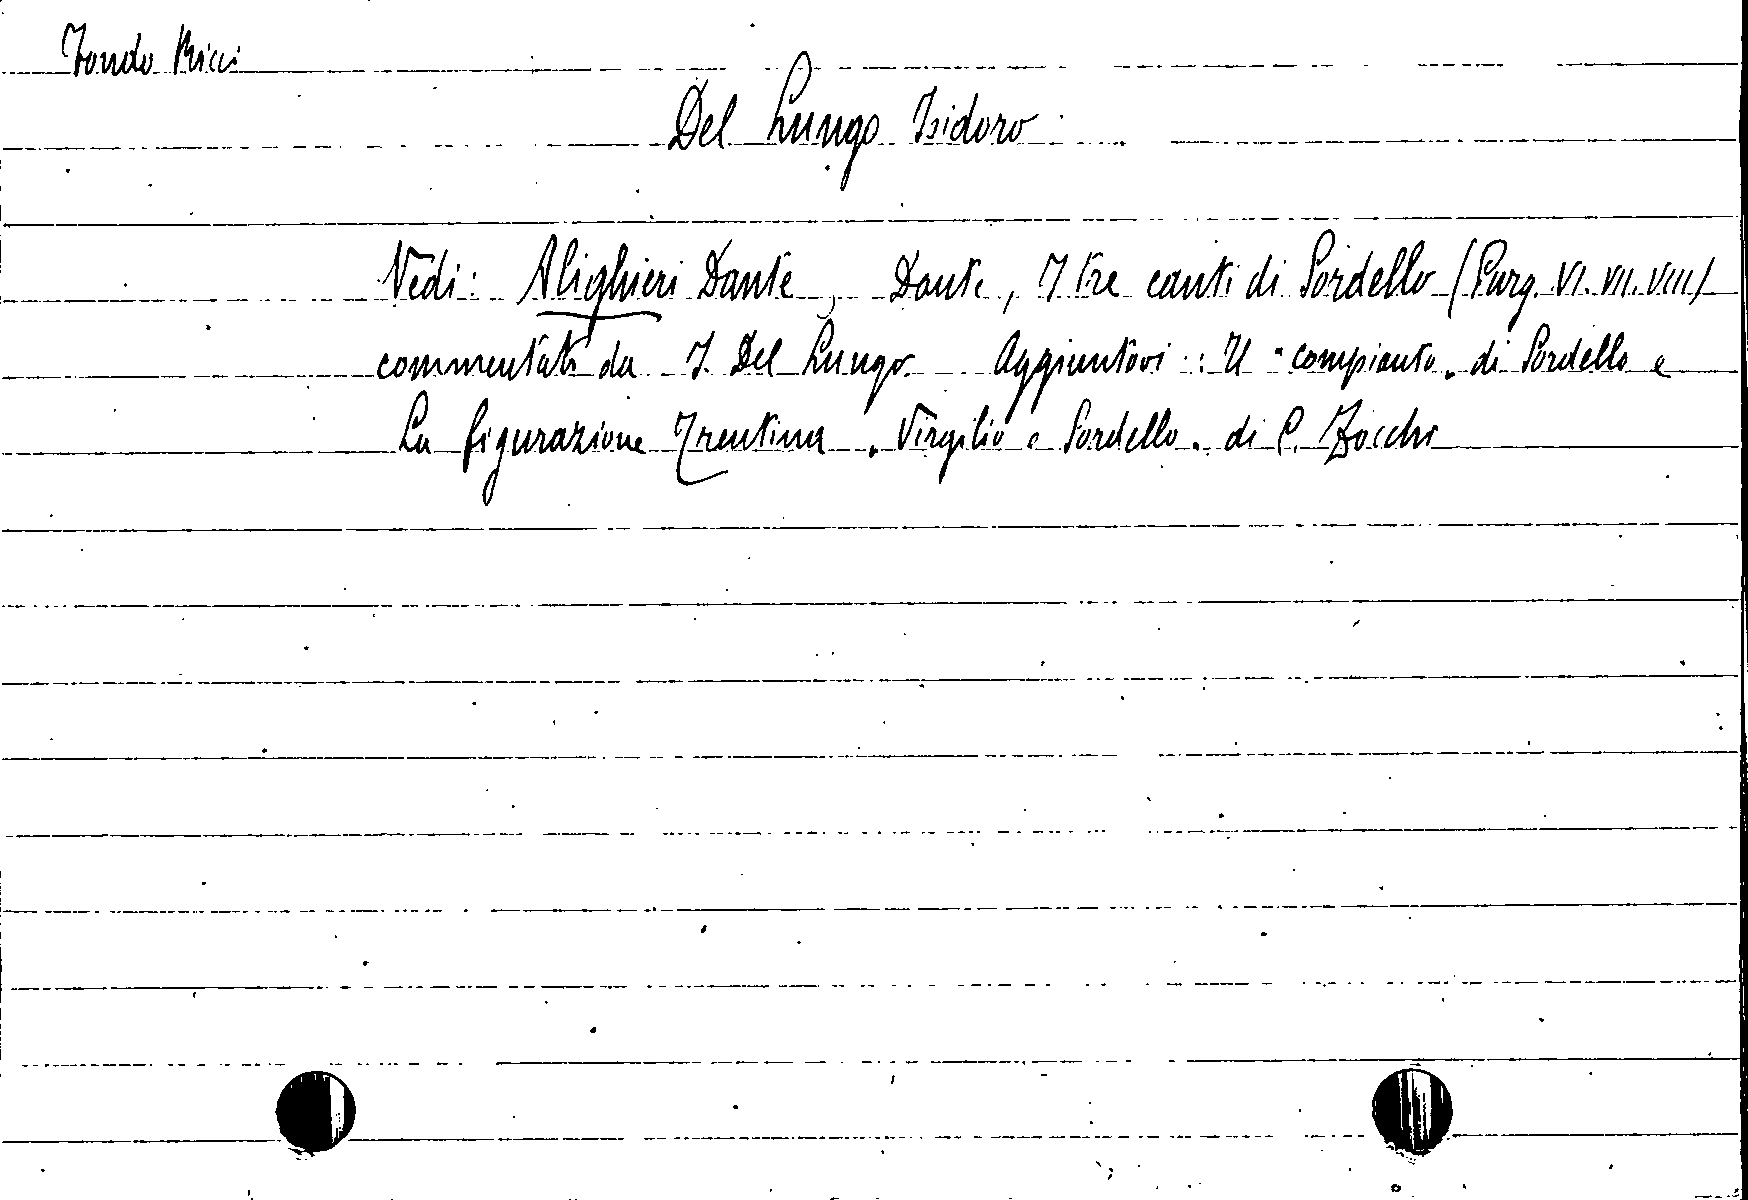 Fondo Ricci
Del Lungo Isidoro
Vedi: Alighieri Dante, Dante, I tre canti di Sordello (Purg. VI. VII. VIII)
commentati da I. Del Lungo Aggiuntovi: Il "compianto" di Sordello e
La figurazione Trentina "Virgilio e Sordello" di C. Zocchi